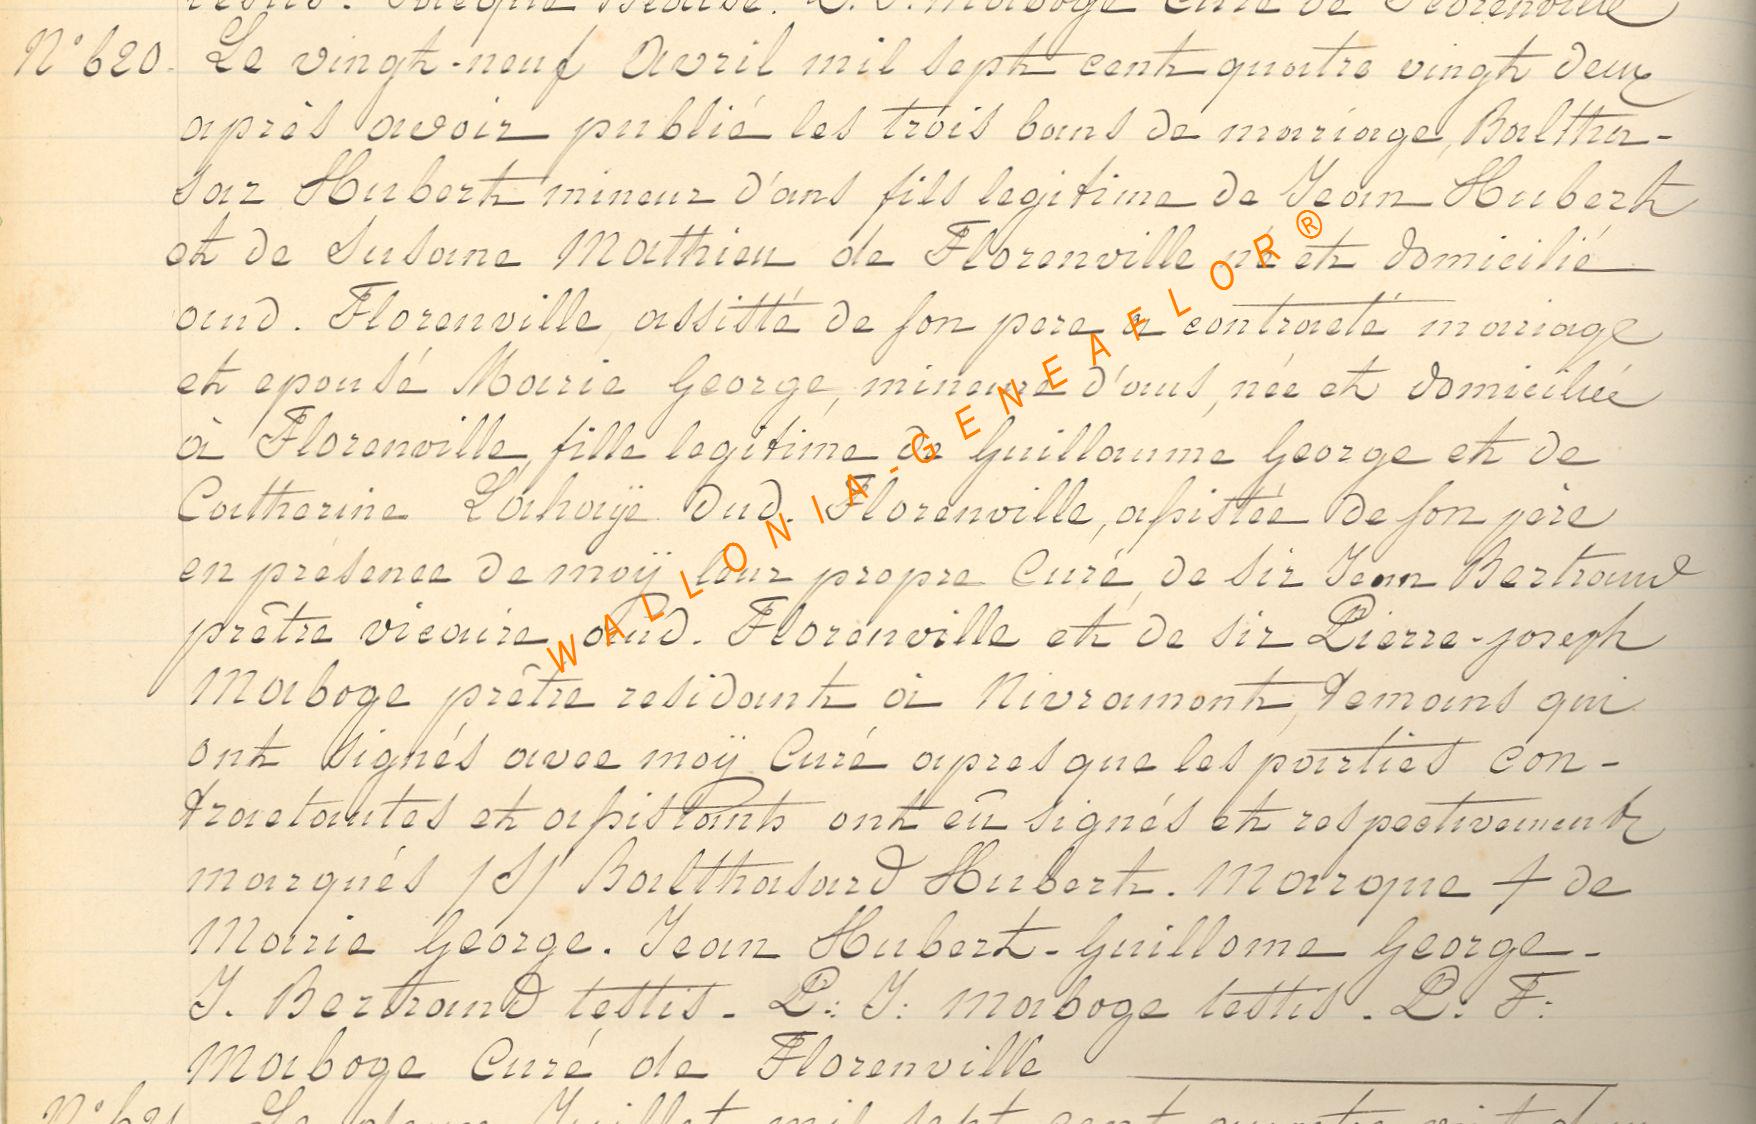 testis. Jacque Blaise. P. F. Maboge Curé de Florenville
N° 620. Le vingt-neuf Avril mil sept cent quatre vingt deux
après avoir publié les trois bans de mariage, Baltha-
sar Hubert mineur d'ans fils legitime de Jean Hubert
et de Susane Mathieu de Florenville né et domicilié
aud. Florenville, assisté de son pere a contracté mariage
et epousé Marie George, mineure d'ans, née et domiciliée
à Florenville, fille legitime de Guillaume George et de
Catherine Lahaÿe dud. Florenville, assistée de son père
en présence de moÿ leur propre Curé, de sir Jean Bertrand
prêtre vicaire aud. Florenville et de sir Pierre-joseph
Maboge prêtre residant à Nivramont, temoins qui
ont signés avec moÿ Curé apres que les parties con-
tractantes et assistants ont eû signés et respectivement
marqués /S/ Balthasard Hubert. Marque + de
Marie George. Jean Hubert - Guillome George -
J. Bertrand testis - P: J: Maboge testis - P. F:
Maboge Curé de Florenville
N° 621 Le deux Juillet mil sept cent quatre vingt deux
WALLONIA-GENEAFLOR®